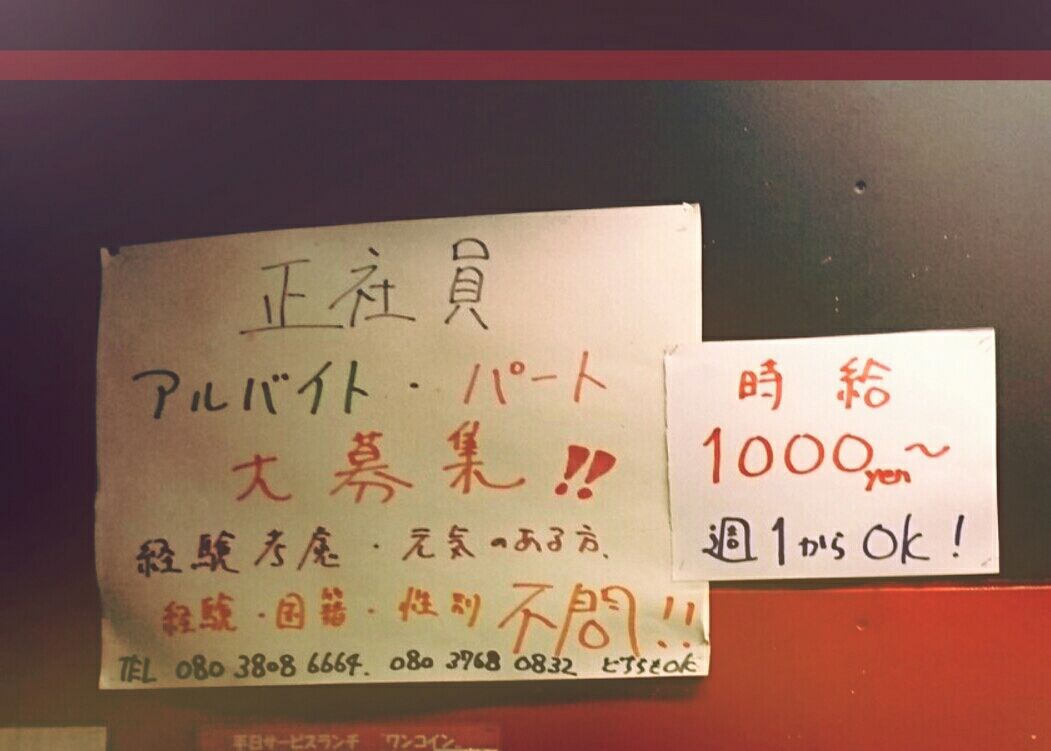 正社員
アルバイト・パート
大募集!!
経験考慮・元気のある方、
経験・国籍・性別不問!!
TEL 080 3808 6664. 080 3768 0832 どちらもOK
時給
1000yen～
週1からOK!
平日サービスランチ ワンコイン